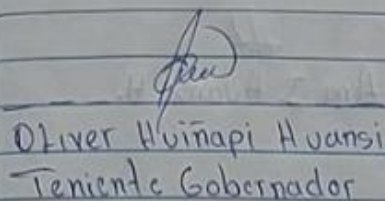 Oliver Huiñapi Huansi
Teniente Gobernador